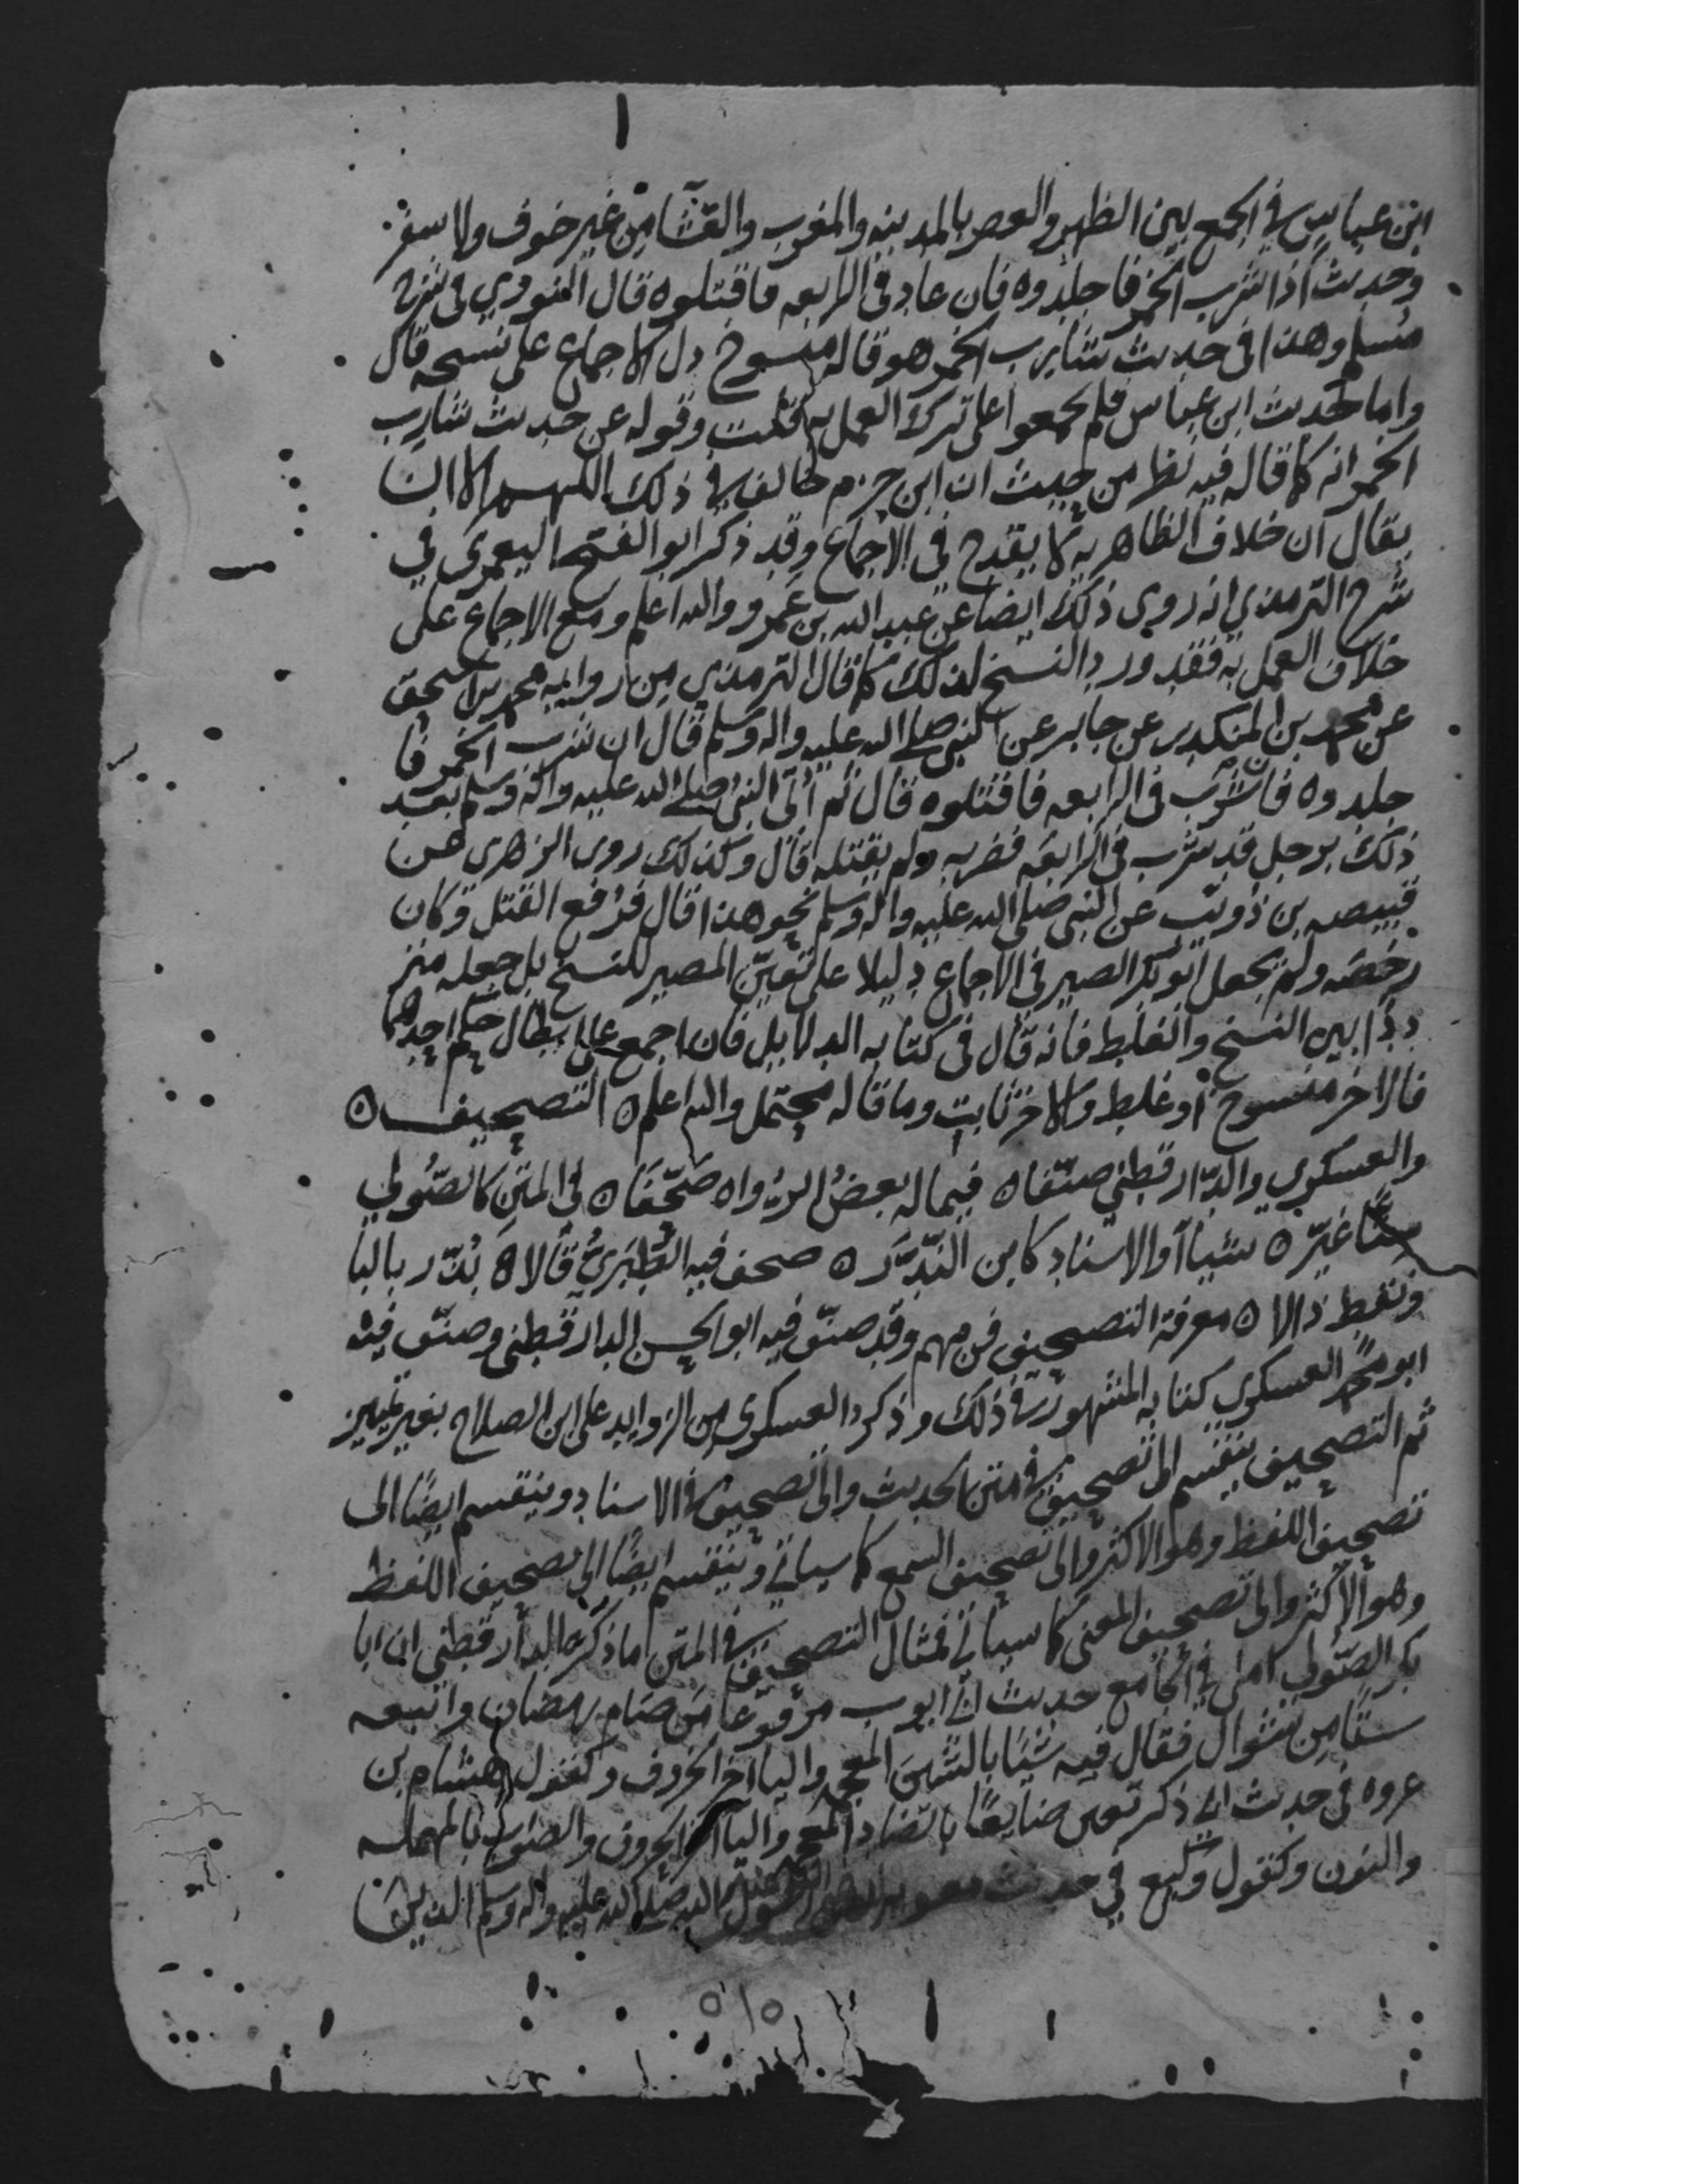 ابن عباس في الجمع بين الظهر والعصر بالمدينه والمغرب والعشا من غير خوف ولا سفر
وحديث اذا شرب الخمر فاجلدوه فان عاد في الرابعه فاقتلوه قال النووي في شرح
مسلم وهذا في حديث شارب الخمر هو قاله منسوخ دل الاجماع على نسخه قال
واما حديث ابن عباس فلم يجمعوا على ترك العمل به قلت وقوله عن حديث شارب
الخمر انه كما قاله فيه نظر من حيث ان ابن حزم خالف في ذلك اللهم الا ان
يقال ان خلاف الظاهريه لا يقدح في الاجماع وقد ذكر ابو الفتح اليعمري في
شرح الترمذي انه روى ذلك ايضا عن عبد الله بن عمرو والله اعلم ومع الاجماع على
خلاف العمل به فقد ورد النسخ لذلك كما قال الترمذي من روايه محمد بن اسحق
عن محمد بن المنكدر عن جابر عن النبي صلى الله عليه واله وسلم قال ان شرب الخمر فا
جلدوه فان شرب في الرابعه فاقتلوه قال ثم اتى النبي صلى الله عليه واله وسلم بعد
ذلك برجل قد شرب في الرابعه فضربه ولم يقتله قال وكذلك روى الزهري عن
قبيصه بن ذويب عن النبي صلى الله عليه واله وسلم نحو هذا قال فرفع القتل وكان
رخصه ولم يجعل ابو بكر الصيرفي الاجماع دليلا على تعين المصير للنسخ بل جعله متر
ددا بين النسخ والغلط فانه قال في كتابه الدلايل فان اجمع على ابطال حكم احدهما
فالاخر منسوخ او غلط والاخر ثابت وما قاله محتمل والله اعلم ه التصحيف ه
والعسكري والدارقطني صنفا ه فيما له بعض الرواه صحفا ه في المتن كالصولي
ستا غير ه شيئا او الاسناد كابن الندر ه صحف فيه الطبري قالا ه بذر بالبا
ونقط ذالا ه معرفة التصحيف فن مهم وقد صنف فيه ابو الحسن الدارقطني وصنف فيه
ابو محمد العسكري كتابه المشهور في ذلك وذكر العسكري من الزوايد على ابن الصلاح بغير تمييز
ثم التصحيف ينقسم الى تصحيف في متن الحديث والى تصحيف في الاسناد وينقسم ايضا الى
تصحيف اللفظ وهو الاكثر والى تصحيف السمع كما سياتي وينقسم ايضا الى تصحيف اللفظ
وهو الاكثر والى تصحيف المعنى كما سياتي فمثال التصحيف في المتن ما ذكره الدارقطني ان ابا
بكر الصولي املى في الجامع حديث ابي ايوب مرفوعا من صام رمضان واتبعه
ستا من شوال فقال فيه شيئا بالشين المعجمه واليا اخر الحروف وكقول هشام بن
عروه في حديث ابي ذكر تعين ضايعا بالضاد المعجمه واليا اخر الحروف والصواب بالمهمله
والنون وكقول وكيع في حديث رسول الله صلى الله عليه واله وسلم الذين